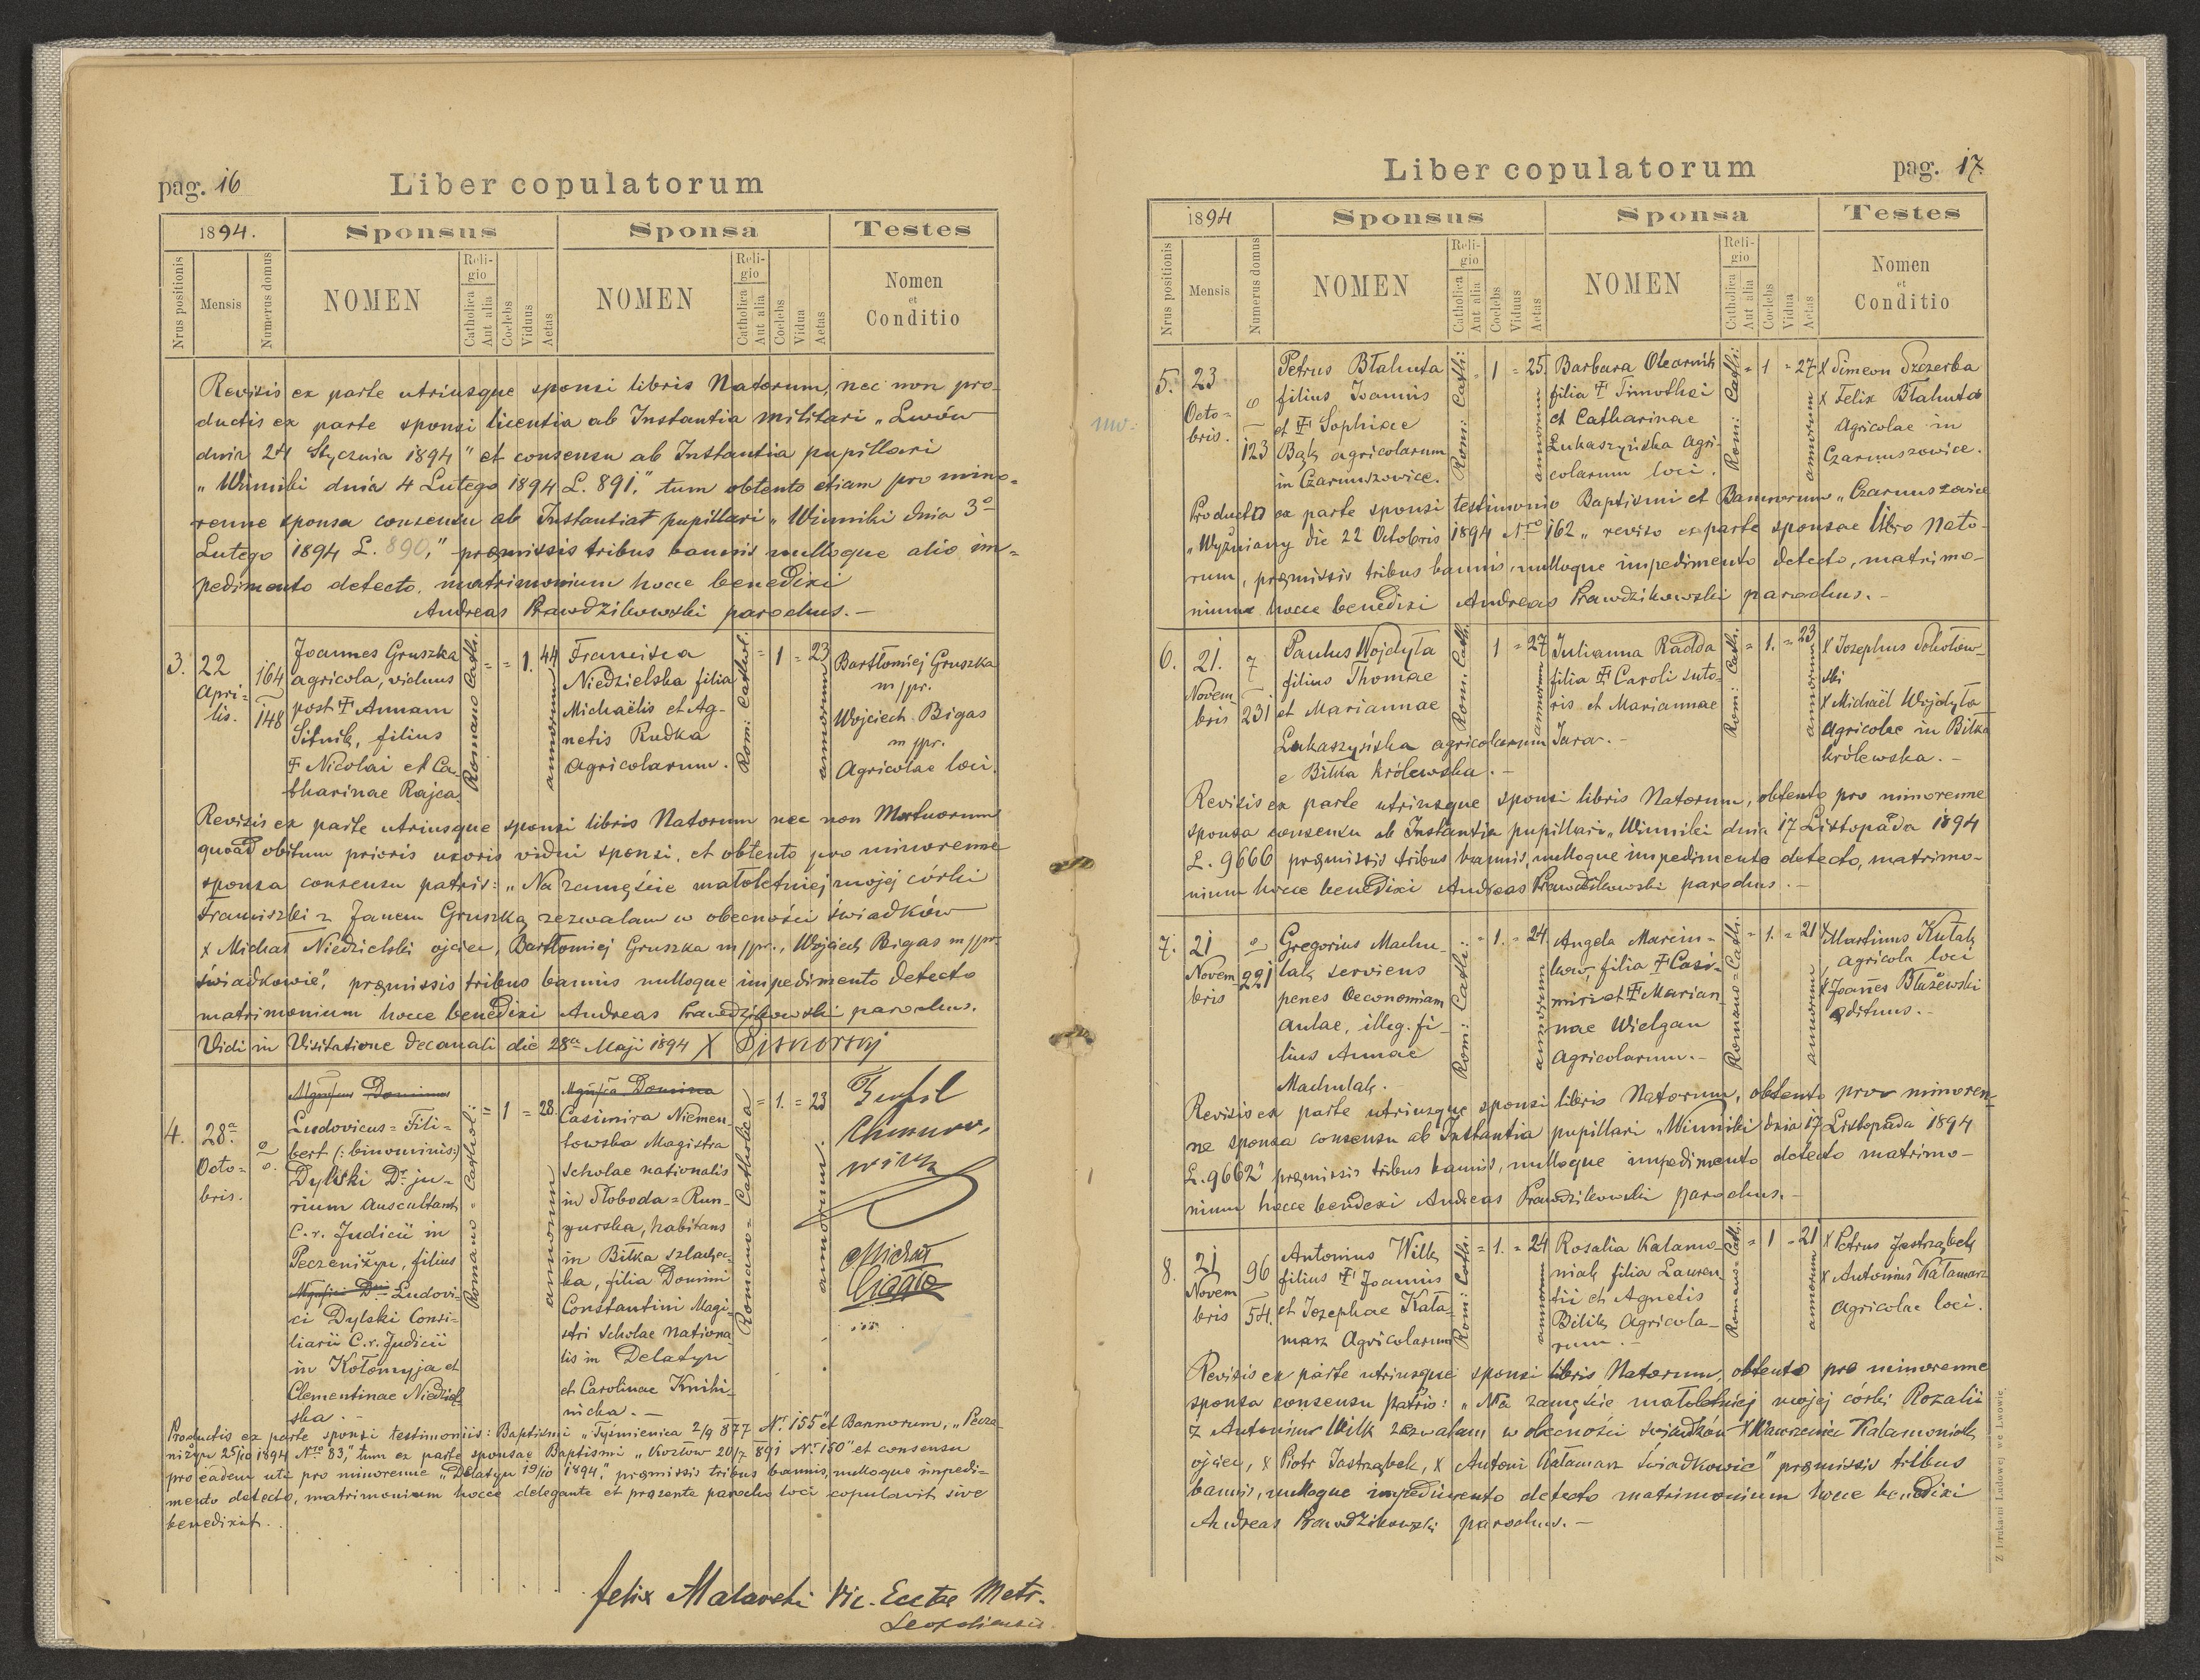 pag. 16
Liber copulatorum
1894.
Sponsus
Sponsa
Testes
Nrus positionis
Mensis
Numerus domus
NOMEN
Religio
Catholica
Aut alia
Coelebs
Viduus
Aetas
NOMEN
Religio
Catholica
Aut alia
Coelebs
Vidua
Aetas
Nomen
et
Conditio
Revisis ex parte utriusque sponsi libris Natorum, nec non pro-
ductis ex parte sponsi licentia ab Instantia militari „Lwów
dnia 24 Stycznia 1894" et consensu ab Instantia pupillari
„Winniki dnia 4 Lutego 1894 L. 891," tum obtento etiam pro mino-
renne sponsa consensu ab Instantiat pupillari „Winniki dnia 3º
Lutego 1894 L. 890," præmissis tribus bannis nulloque alio im-
pedimento detecto, matrimonium hocce benedixi
Andreas Prawdzikowski parochus.-
3.
22
Apri-
lis.
164
148
Joannes Gruszka
agricola, viduus
post ✝ Annam
Sitnik, filius
✝ Nicolai et Ca-
tharinae Rajca.
Romano Cath.
= = 1.
44
annorum
Francisca
Niedzielska filia
Michaëlis et Ag-
netis Rudka
agricolarum.
Rom: Cathol.
= 1 =
23
annorum
Bartłomiej Gruszka
m/pr.
Wojciech Bigas
m/pr.
Agricolae loci.
Revisis ex parte utriusque sponsi libris Natorum nec non Mortuorum
quoad obitum prioris uxoris vidui sponsi, et obtento pro minorenne
sponsa consensu patris: „Na zamęście małoletniej mojej córki
Franciszki z Janem Gruszką zezwalam w obecności świadków
x Michał Niedzielski ojciec, Bartłomiej Gruszka m/pr., Wojciech Bigas m/pr.
świadkowie", præmissis tribus bannis nulloque impedimento detecto
matrimonium hocce benedixi Andreas Prawdzikowski parochus.
Vidi in Visitatione decanali die 28a Maji 1894 X
4.
28a
Octo-
bris.
Mgnificus Dominus
Ludovicus = Fili-
bert (: binominis:)
Dylski Dr ju-
rium Auscultant
C. r. Judicii in
Peczeniżyn, filius
Mgnifici Dni Ludovi-
ci Dylski Consi-
liarii C. r. Judicii
in Kołomyja et
Clementinae Niedziel-
ska.
Romano = Cathol:
= 1 =
28.
annorum
Mgnifica Domina
Casimira Niemen-
towska Magistra
Scholae nationalis
in Słoboda = Run-
gurska, habitans
in Biłka szlachec-
ka, filia Domini
Constantini Magi-
stri Scholae Nationa-
lis in Delatyn
et Carolinae Knihi-
nicka.-
Romano = Catholica
= 1. =
23
annorum.
Michał
Productis ex parte sponsi testimoniis: Baptismi „Tyśmienica 2/9 877 Nr. 155" et Bannorum, „Pecze-
niżyn 25/10 1894 Nro 83," tum ex parte sponsae Baptismi „Kozłow 20/7 891 Nr 150" et consensu
pro eadem uti pro minorenne „Delatyn 19/10 1894," præmissis tribus bannis, nulloque impedi-
mento detecto, matrimonium hocce delegante et præsente parocho loci copulavit sive
benedixit.
Felix Malawski Vic. Eccłae Metr.
Leopoliensis.
Liber copulatorum
pag. 17.
1894
Sponsus
Sponsa
Testes
Nrus positionis
Mensis
Numerus domus
NOMEN
Religio
Catholica
Aut alia
Coelebs
Viduus
Aetas
NOMEN
Religio
Catholica
Aut alia
Coelebs
Vidua
Aetas
Nomen
et
Conditio
5.
23
Octo-
bris.
123
Petrus Błahuta
filius Joannis
et ✝ Sophiae
Bąk agricolarum
in Czarnuszowice.
Rom: Cath:
1 =
25.
annorum
Barbara Olearnik
filia ✝ Timothei
et Catharinae
Łukaszyńska Agri-
colarum loci.
Rom: Cath:
= 1 =
27
annorum
x Simeon Szczerba
x Felix Błahuta
Agricolae in
Czarnuszowice.
Producto ex parte sponsi testimonio Baptismi et Bannorum „Czarnuszowice
„Wyżniany die 22 Octobris 1894 Nro 162" reviso ex parte sponsae libro Nato-
rum, præmissis tribus bannis, nulloque impedimento detecto, matrimo-
nium hocce benedixi Andreas Prawdzikowski parochus.-
6.
21.
Novem
bris
7
231
Paulus Wojdyła
filius Thomae
et Mariannae
Łukaszyńska agricolarum
e Biłka królewska.-
Rom. Cath.
1 =
27
annorum
Julianna Radda
filia ✝ Caroli suto-
ris et Mariannae
Jura.-
Rom: Cath.
= 1. =
23
annorum
x Josephus Sokołow-
ski
x Michaël Wojdyła
Agricolae in Biłka
królewska.-
Revisis ex parte utriusque sponsi libris Natorum, obtento pro minorenne
sponsa consensu ab Instantia pupillari „Winniki dnia 17 Listopada 1894
L. 9666 præmissis tribus bannis, nulloque impedimento detecto, matrimo-
nium hocce benedixi Andreas Prawdzikowski parochus.-
7.
21
Novem
bris
221
Gregorius Machu-
lak serviens
penes Oeconomiam
aulae, illeg. fi-
lius Annae
Machulak.
Rom: Cath:
= 1. =
24
annorum
Angela Marcin-
ków, filia ✝ Casi-
miri et ✝ Marian-
nae Wielgan
Agricolarum.-
Romano = Cath.
= 1. =
21
annorum
x Martinus Kułak
Agricola loci
x Joannes Błażewski
aedituus.-
Revisis ex parte utriusque sponsi libris Natorum, obtento pro minoren-
ne sponsa consensu ab Instantia pupillari „Winniki dnia 17 Listopada 1894
L. 9662" præmissis tribus bannis, nulloque impedimento detecto matrimo-
nium hocce benedixi Andreas Prawdzikowski parochus.-
8.
21
Novem
bris
96
54.
Antonius Wilk
filius ✝ Joannis
et Josephae Kała-
marz Agricolarum
Rom: Cath.
= 1. =
24
annorum
Rosalia Kalamo-
niak filia Lauren-
tii et Agnetis
Bilik Agricola-
rum.-
Romano = Cath.
= 1 =
21
annorum
x Petrus Jastrząbek
x Antonius Kałamarz
Agricolae loci.
Revisis ex parte utriusque sponsi libris Natorum, obtento pro minorenne
sponsa consensu patris: „Na zamęście małoletniej mojej córki Rozalii
z Antonim Wilk zezwalam w obecności świadków x Wawrzeniec Kalamoniak
ojciec, x Piotr Jastrząbek, x Antoni Kałamarz świadkowie" præmissis tribus
bannis, nulloque impedimento detecto matrimonium hocce benedixi
Andreas Prawdzikowski parochus.-
Z Drukarni Ludowej we Lwowie.